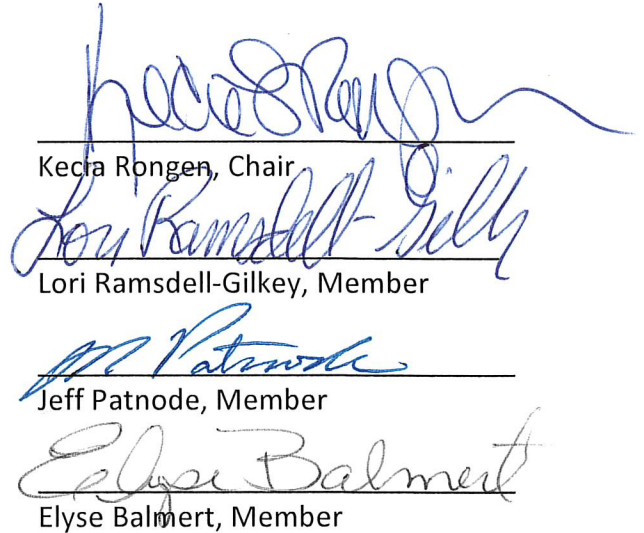 Kecia Rongen
Kecia Rongen, Chair
Lori Ramsdell-Gilkey
Lori Ramsdell-Gilkey, Member
JM Patnode
Jeff Patnode, Member
Elyse Balmert
Elyse Balmert, Member